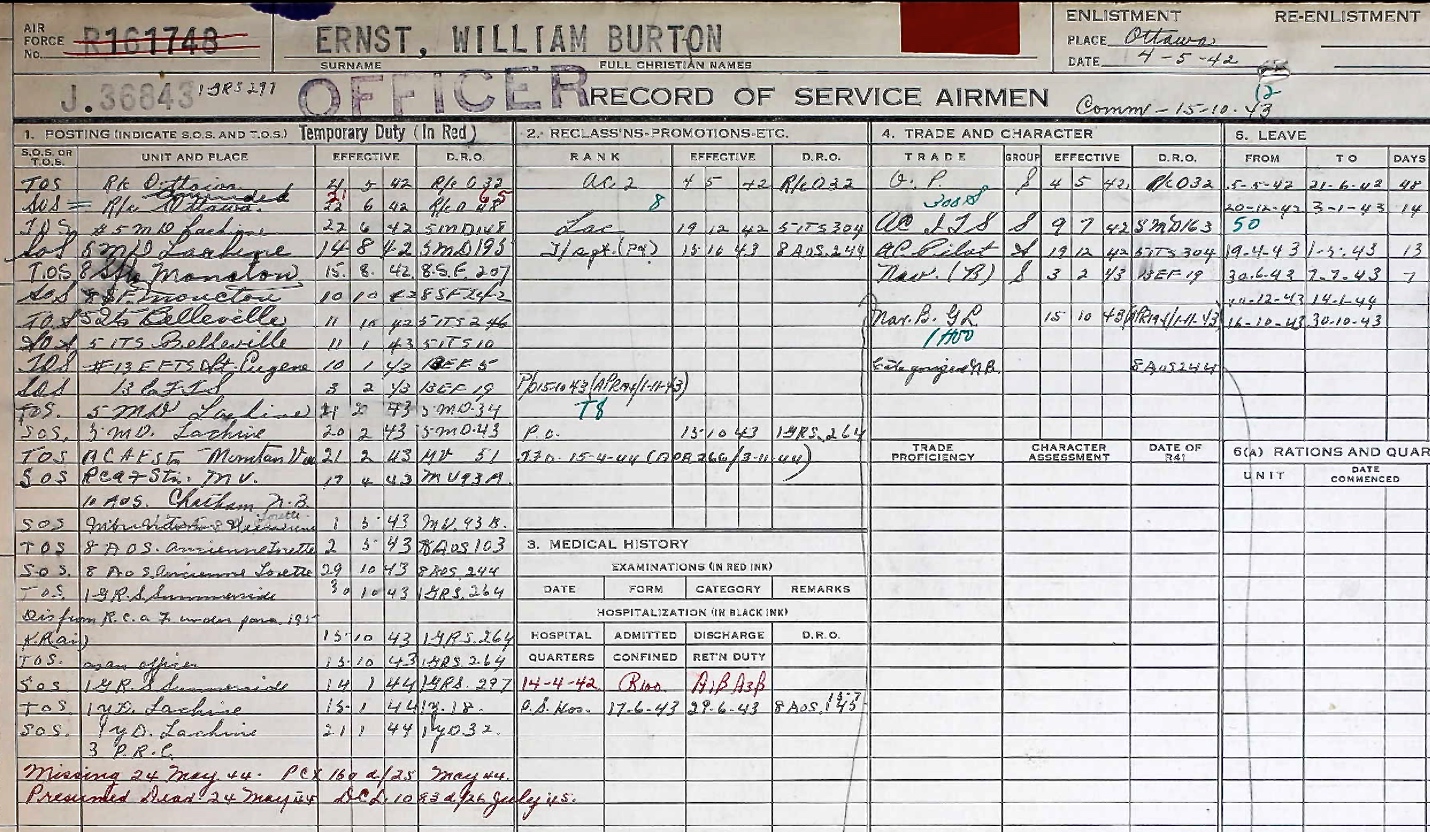 AIR FORCE No. R161748 ERNST, WILLIAM BURTON
SURNAME FULL CHRISTIAN NAMES
ENLISTMENT RE-ENLISTMENT
PLACE Ottawa
DATE 4-5-42
J.36843 1GRS297 OFFICER RECORD OF SERVICE AIRMEN
Comm - 15-10-43
1. POSTING (INDICATE S.O.S. AND T.O.S.) Temporary Duty (In Red)
S.O.S. OR T.O.S. UNIT AND PLACE EFFECTIVE D.R.O.
TOS R/c Ottawa 5 42 R/c O 32
SOS R/c Ottawa. 22 6 42
TOS # 5 MD Lachine 22 6 42 5MD148
SOS 5 MD Lachine 14 8 42 5MD195
T.OS Moncton 15. 8. 42. 8.S.F. 207
SOS 8 S.F. Moncton 10 10 42
TOS 5 Its Belleville 11 10 42 5 ITS 246
SOS 5 ITS Belleville 11 1 43 5ITS10
TOS #13 EFTS St. Eugene 10 1 43 13EF 5
SOS 13 EFTS 3 2 43 13EF 19
TOS. 5 MD Lachine 2 43 5 MD.34
SOS. 5 MD. Lachine 20 2 43 5MD.43
TOS 21 2 43 MV 51
SOS M.V. 17 4 43 MV93A
10 AOS. Chatham N.B.
SOS 1 5 43 MV. 93 B.
TOS 8 AOS. Ancienne Lorette 2 5 43 8AOS103
SOS. 8 AOS Ancienne Lorette 29 10 43 8AOS 244
TOS. 1 G.R.S. Summerside 30 10 43 1GRS.264
Dis from R.C.A.F. under para. 195
KRAir) 15-10 43 1GRS.264
TOS. as an officer 15-10 43 1GRS.264
SOS 1 GR.S Summerside 14 1 44 1GRS.297
TOS 1 Y.D. Lachine 15-1 44 1Y.18.
SOS. 1 Y.D. Lachine 21 1 44 1YD32.
3 P.R.C.
Missing 24 May 44. 160 d/25 May 44.
Presumed Dead 24 May 44 d/26 July 45.
2. RECLASS'NS-PROMOTIONS-ETC.
RANK EFFECTIVE D.R.O.
AC.2 4 5 42 R/c O32
8
Lac 19 12 42 5ITS304
T/Sgt.(Pd) 15 10 43 8AOS.244
P/O 15-10 43 (APR194/1-11-43)
T8
P.O. 15 10 43 1GRS.264
F.O. 15-4-44 (APR266/3-11-44)
3. MEDICAL HISTORY
EXAMINATIONS (IN RED INK)
DATE FORM CATEGORY REMARKS
HOSPITALIZATION (IN BLACK INK)
HOSPITAL ADMITTED DISCHARGE D.R.O.
QUARTERS CONFINED RET'N DUTY
14-4-42 R100 A1B A3B
P.S. Hos. 17-6-43 29-6-43 8AOS.
4. TRADE AND CHARACTER
TRADE GROUP EFFECTIVE D.R.O.
S 4 5 42 R/c O32
AC ITS S 9 7 42 5MD163
AC Pilot 19 12 42 5ITS304
Nav. (B) S 3 2 43 13EF-19
Nav. B. GL 15 10 43 (APR194/1-11-43)
Categorized N.B. 8AOS244
TRADE PROFICIENCY CHARACTER ASSESSMENT DATE OF R41
5. LEAVE
FROM TO DAYS
5-5-42 21-6-42 48
20-12-42 3-1-43 14
50
19-4-43 1-5-43 13
30.6-43 7-7-43 7
14-1-44
16-10-43 30-10-43
6(A) RATIONS AND QUAR
UNIT DATE COMMENCED